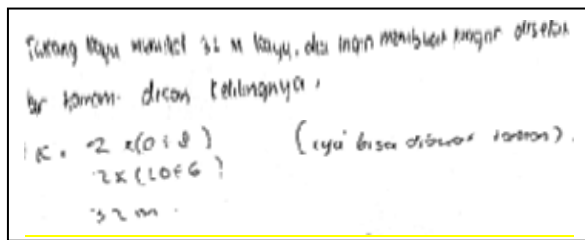 Tukang kayu memiliki 32 M kayu, dia ingin membuat pagar disekitar
taman. dicari kelilingnya,
K = 2 x (
2 x (10 + 6) (iya bisa dibuat taman).
32 m.